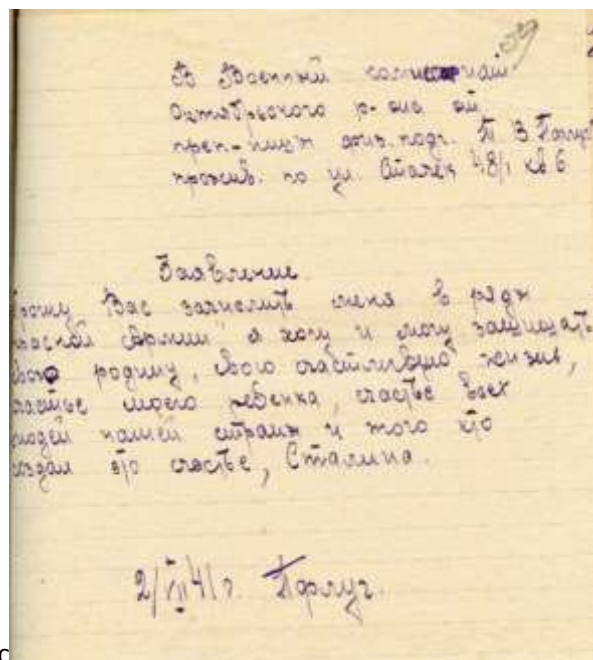 39
В Военный комиссариат
Октябрьского р-она от
физ. подг. П. З.
прожив. по ул. Стачек 48/1 кв 6
Заявление.
Прошу Вас зачислить меня в ряды
красной армии, я хочу и могу защищать
свою родину, свою счастливую жизнь,
счастье моего ребенка, счастье всех
людей нашей страны и того кто
создал это счастье, Сталина.
2/VII 41 г.